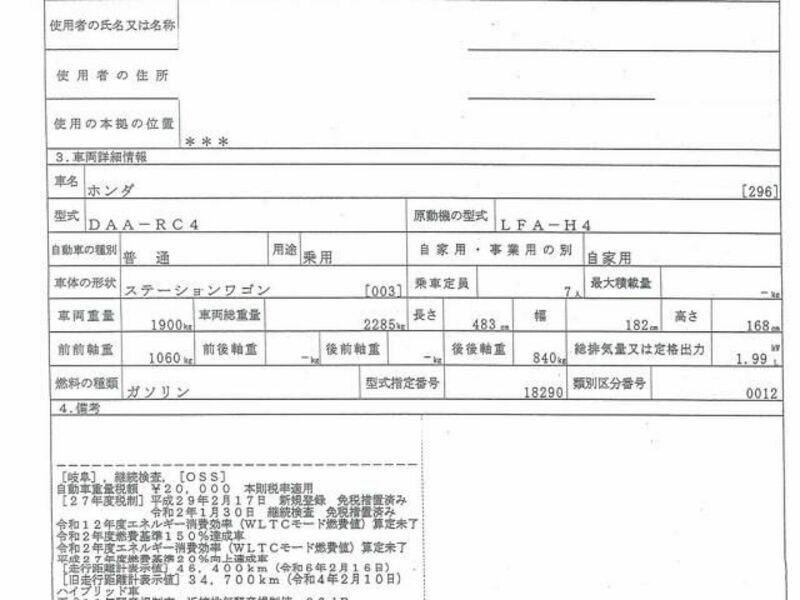 使用者の氏名又は名称
使用者の住所
使用の本拠の位置 ＊＊＊
3.車両詳細情報
車名 ホンダ [296]
型式 DAA－RC4 原動機の型式 LFA－H4
自動車の種別 普通 用途 乗用 自家用・事業用の別 自家用
車体の形状 ステーションワゴン [003] 乗車定員 7人 最大積載量 －kg
車両重量 1900kg 車両総重量 2285kg 長さ 483cm 幅 182cm 高さ 168cm
前前軸重 1060kg 前後軸重 －kg 後前軸重 －kg 後後軸重 840kg 総排気量又は定格出力 1.99 kW L
燃料の種類 ガソリン 型式指定番号 18290 類別区分番号 0012
4.備考
[岐阜]，継続検査，[OSS]
自動車重量税額 ￥20，000 本則税率適用
[27年度税制]平成29年2月17日 新規登録 免税措置済み
令和2年1月30日 継続検査 免税措置済み
令和12年度エネルギー消費効率（WLTCモード燃費値）算定未了
令和2年度燃費基準150％達成車
令和2年度エネルギー消費効率（WLTCモード燃費値）算定未了
平成27年度燃費基準20％向上達成車
[走行距離計表示値]46，400km（令和6年2月16日）
[旧走行距離計表示値]34，700km（令和4年2月10日）
ハイブリッド車